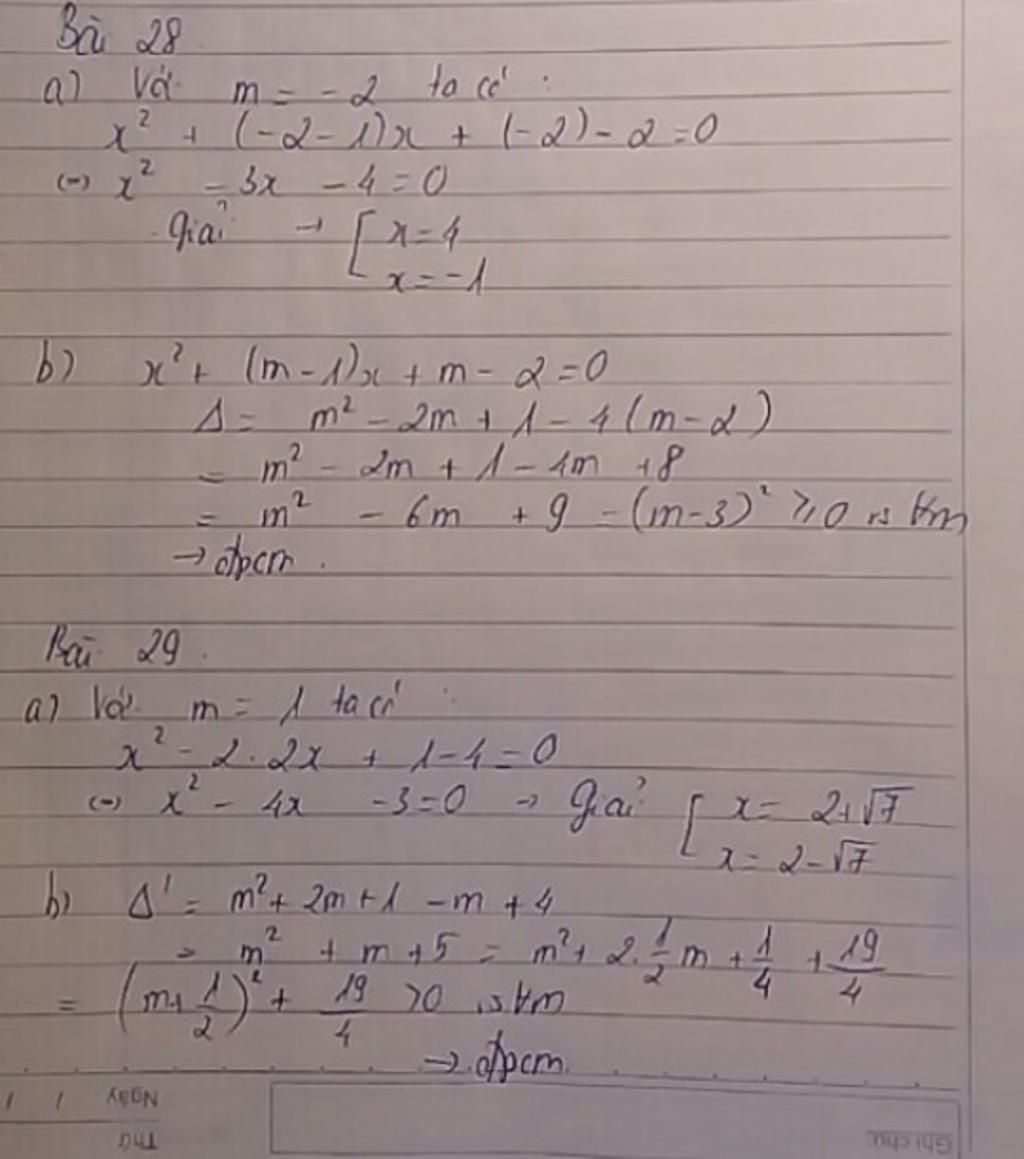 Bài 28
a) Với m = -2 ta có :
x² + (-2-1)x + (-2) - 2 = 0
(=) x² - 3x - 4 = 0
Giải → [ x = 4
x = -1
b) x² + (m-1)x + m - 2 = 0
Δ = m² - 2m + 1 - 4(m-2)
= m² - 2m + 1 - 4m + 8
= m² - 6m + 9 = (m-3)² ≥ 0 ∀m
→ đpcm.
Bài 29.
a) Với m = 1 ta có :
x² - 2.2x + 1-4 = 0
(=) x² - 4x - 3 = 0 → Giải [ x = 2+√7
x = 2-√7
b) Δ' = m² + 2m + 1 - m + 4
= m² + m + 5 = m² + 2.1/2 m + 1/4 + 19/4
= (m+1/2)² + 19/4 > 0 ∀m
→ đpcm.
Ngày / /
Thứ
Ghi chú